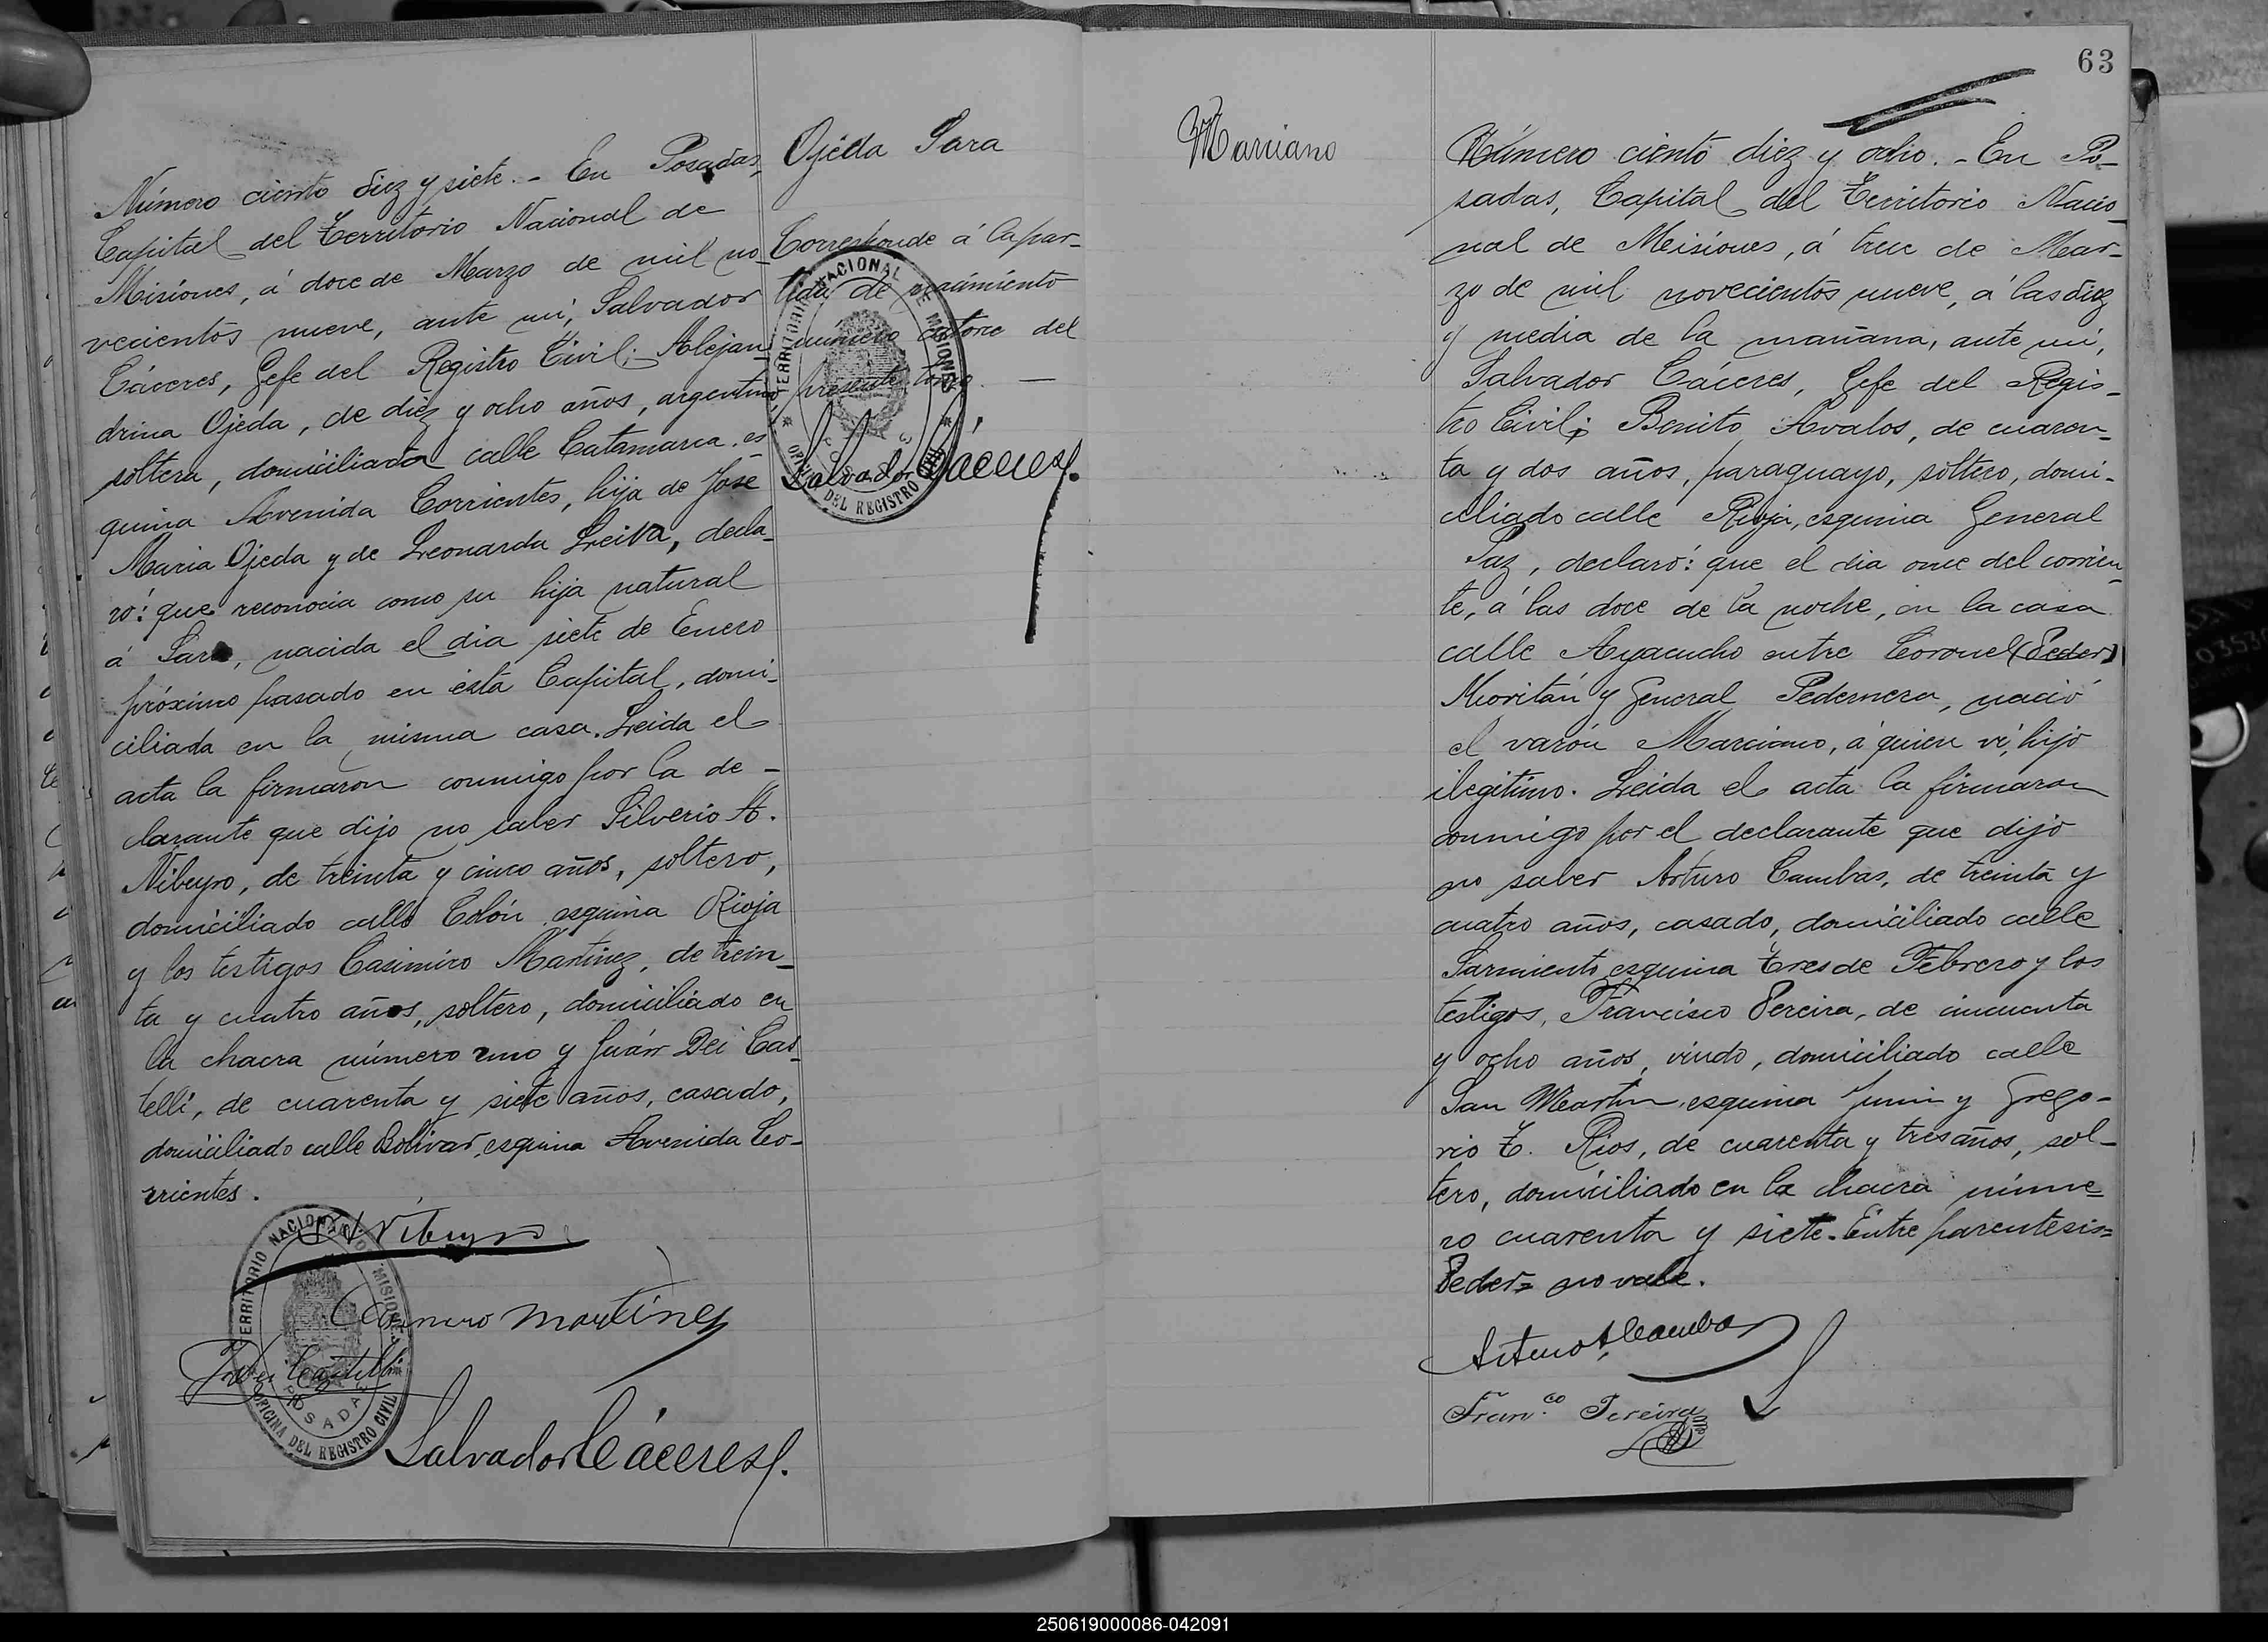 Número ciento diez y siete. - En Posadas,
Capital del Territorio Nacional de
Misiones, á doce de Marzo de mil no-
vecientos nueve, ante mí, Salvador
Cáceres, Gefe del Registro Civil; Alejan-
drina Ojeda, de diez y ocho años, argentina,
soltera, domiciliada calle Catamarca, es-
quina Avenida Corrientes, hija de José
Maria Ojeda y de Leonarda Leiva, decla-
ró: que reconocia como su hija natural
á Sara, nacida el dia siete de Enero
próximo pasado en ésta Capital, domi-
ciliada en la misma casa. Leida el
acta la firmaron conmigo por la de-
clarante que dijo no saber Silverio A.
Nibeyro, de treinta y cinco años, soltero,
domiciliado calle Colón esquina Rioja
y los testigos Casimiro Martinez, de trein-
ta y cuatro años, soltero, domiciliado en
la chacra número uno y Juán Dei Cas-
telli, de cuarenta y siete años, casado,
domiciliado calle Bolivar, esquina Avenida Co-
rrientes.
Casimiro Martínez
J Dei Castelli
Salvador Cáceres
TERRITORIO NACIONAL DE MISIONES
POSADAS
OFICINA DEL REGISTRO CIVIL
Ojeda Sara
Corresponde á la par-
tida de nacimiento
número catorce del
presente tomo. —
Salvador Cáceres
TERRITORIO NACIONAL DE MISIONES
POSADAS
OFICINA DEL REGISTRO CIVIL
Marciano
63
Número ciento diez y ocho. - En Po-
sadas, Capital del Territorio Nacio-
nal de Misiones, á trece de Mar-
zo de mil novecientos nueve, á las diez
y media de la mañana, ante mí,
Salvador Cáceres, Gefe del Regis-
tro Civil; Benito Avalos, de cuaren-
ta y dos años, paraguayo, soltero, domi-
ciliado calle Rioja, esquina General
Paz, declaró: que el dia once del corrien-
te, á las doce de la noche, en la casa
calle Ayacucho entre Coronel (Peder)
Moritán y General Pedernera, nació
el varón Marciano, á quien ví, hijo
ilegítimo. Leida el acta la firmaron
conmigo por el declarante que dijo
no saber Arturo Cambas, de treinta y
cuatro años, casado, domiciliado calle
Sarmiento esquina Tres de Febrero y los
testigos, Francisco Pereira, de cincuenta
y ocho años, viudo, domiciliado calle
San Martin, esquina Junin y Grego-
rio T. Rios, de cuarenta y tres años, sol-
tero, domiciliado en la chacra núme-
ro cuarenta y siete. Entre parentesis=
Peder= no vale.
Arturo A. Cambas
Fran.co Pereira
250619000086-042091